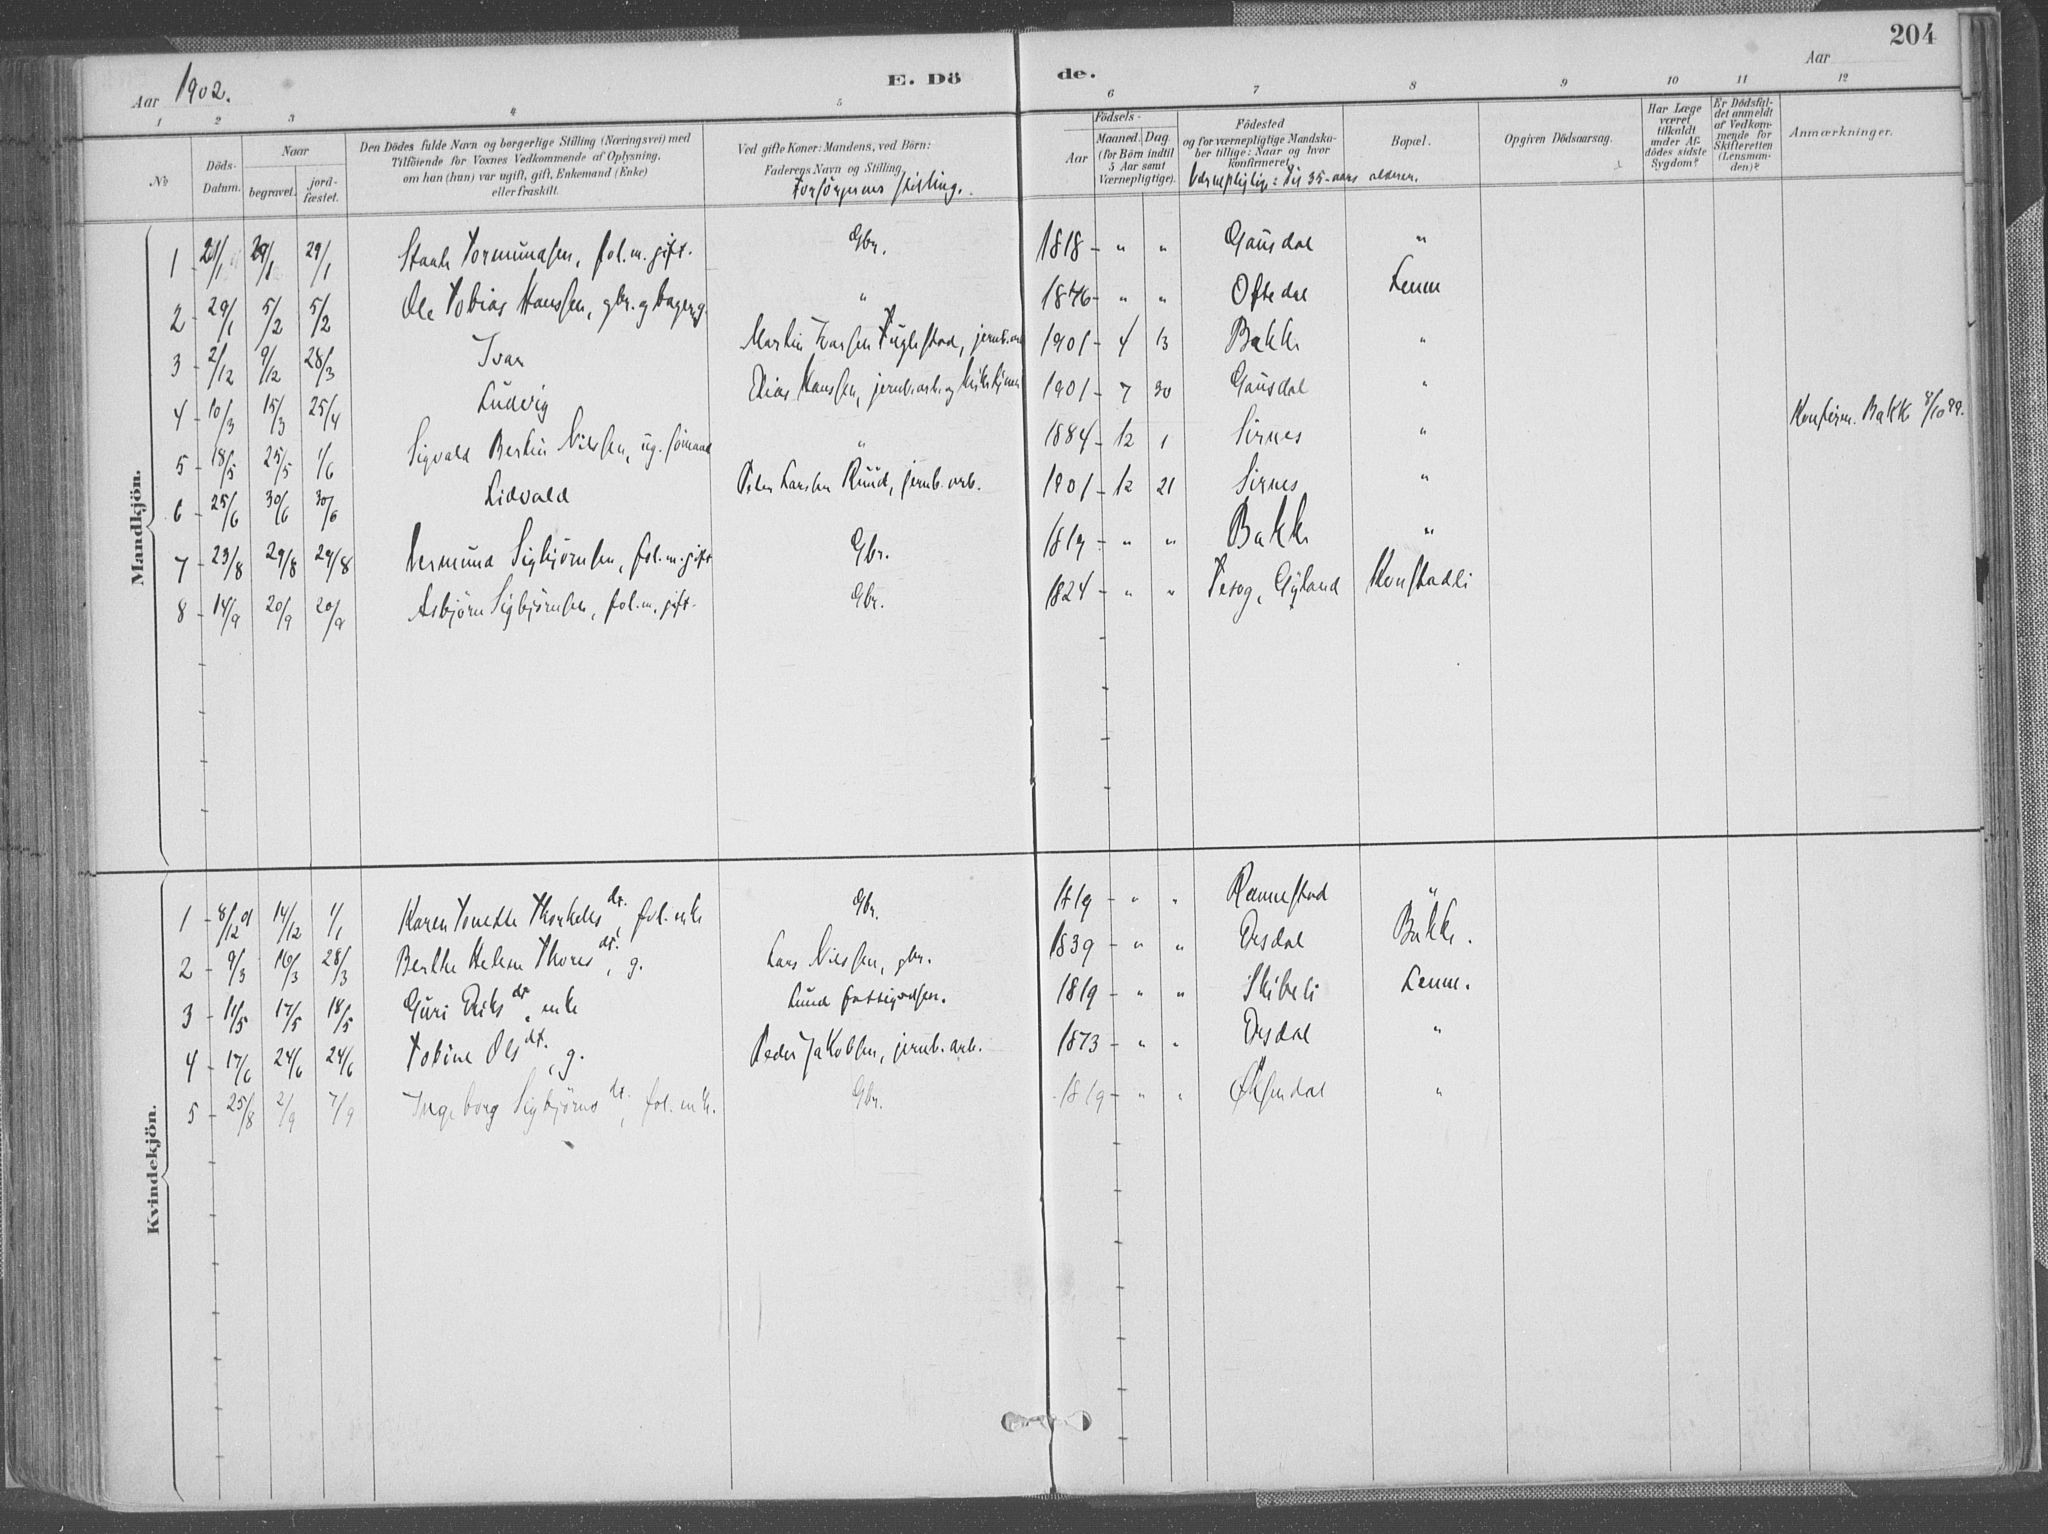 204
Aar 1902.
E. Dö de.
Aar
1 2 3 4 5 6 7 8 9 10 11 12
No
Döds-Datum.
Naar begravet. jord-fæstet.
Den Dödes fulde Navn og borgerlige Stilling (Næringsvei) med Tilföiende for Voxnes Vedkommende af Oplysning, om han (hun) var ugift, gift, Enkemand (Enke) eller fraskilt.
Ved gifte Koner: Mandens, ved Börn: Faderens Navn og Stilling.
Forsørgerens stilling.
Födsels-
Aar Maaned. Dag. (for Börn indtil 5 Aar samt Værnepligtige).
Födested og for værnepligtige Mandskaber tillige: Naar og hvor konfirmeret.
Værnepligtige: til 35-aars alderen.
Bopæl.
Opgiven Dödsaarsag.
Har Læge været tilkaldt under Afdödes sidste Sygdom?
Er Dödsfaldet anmeldt af Vedkommende for Skifteretten (Lensmanden)?
Anmærkninger.
Mandkjön.
1 21/1 29/1 29/1 Stark Tormundsen, fol.m. gift. Gbr. 1818 " " Gausdal "
2 29/1 5/2 5/2 Ole Tobias Hanssen, gbr. og bager, g. " 1876 " " Oftedal Lenne
3 2/12 9/12 28/3 Ivar Martin Ivarsen Fuglestad, jernb.arb 1901 4 13 Bakke "
4 10/3 15/3 25/4 Ludvig Elias Hanssen, jernb.arb. og 1901 7 30 Gausdal "
5 18/5 25/5 1/6 Sigvald Bertin Nilssen, ug. sømand " 1884 12 1 Sirnes " Konfirm. Bakke 8/10 99.
6 25/6 30/6 30/6 Lidvald Peder Larssen Ruud, jernb. arb. 1901 12 21 Sirnes "
7 23/8 29/8 29/8 Vermund Sigbjørnsen, fol. m. gift Gbr. 1819 " " Bakke "
8 14/9 20/9 20/9 Asbjørn Sigbjørnsen, fol. m. gift. Gbr. 1824 " " Tesog, Gyland Konstadli
Kvindekjön.
1 8/12 01 14/12 1/1 Karen Tonette Thorkelsdr., fol. enke Gbr. 1819 " " Rannestad "
2 9/3 16/3 28/3 Berthe Helene Thoresdr., g. Lars Nilssen, gbr. 1839 " " Orsdal Bakke.
3 11/5 17/5 18/5 Guri Eriksdr., enke Lund fattigvæsen. 1819 " " Skibeli Lenne.
4 17/6 24/6 24/6 Tobine Olsdt., g. Peder Jakobsen, jernb. arb. 1873 " " Orsdal "
5 25/8 2/9 7/9 Ingeborg Sigbjørnsdt., fol. enk. Gbr. 1819 " " Øksendal "